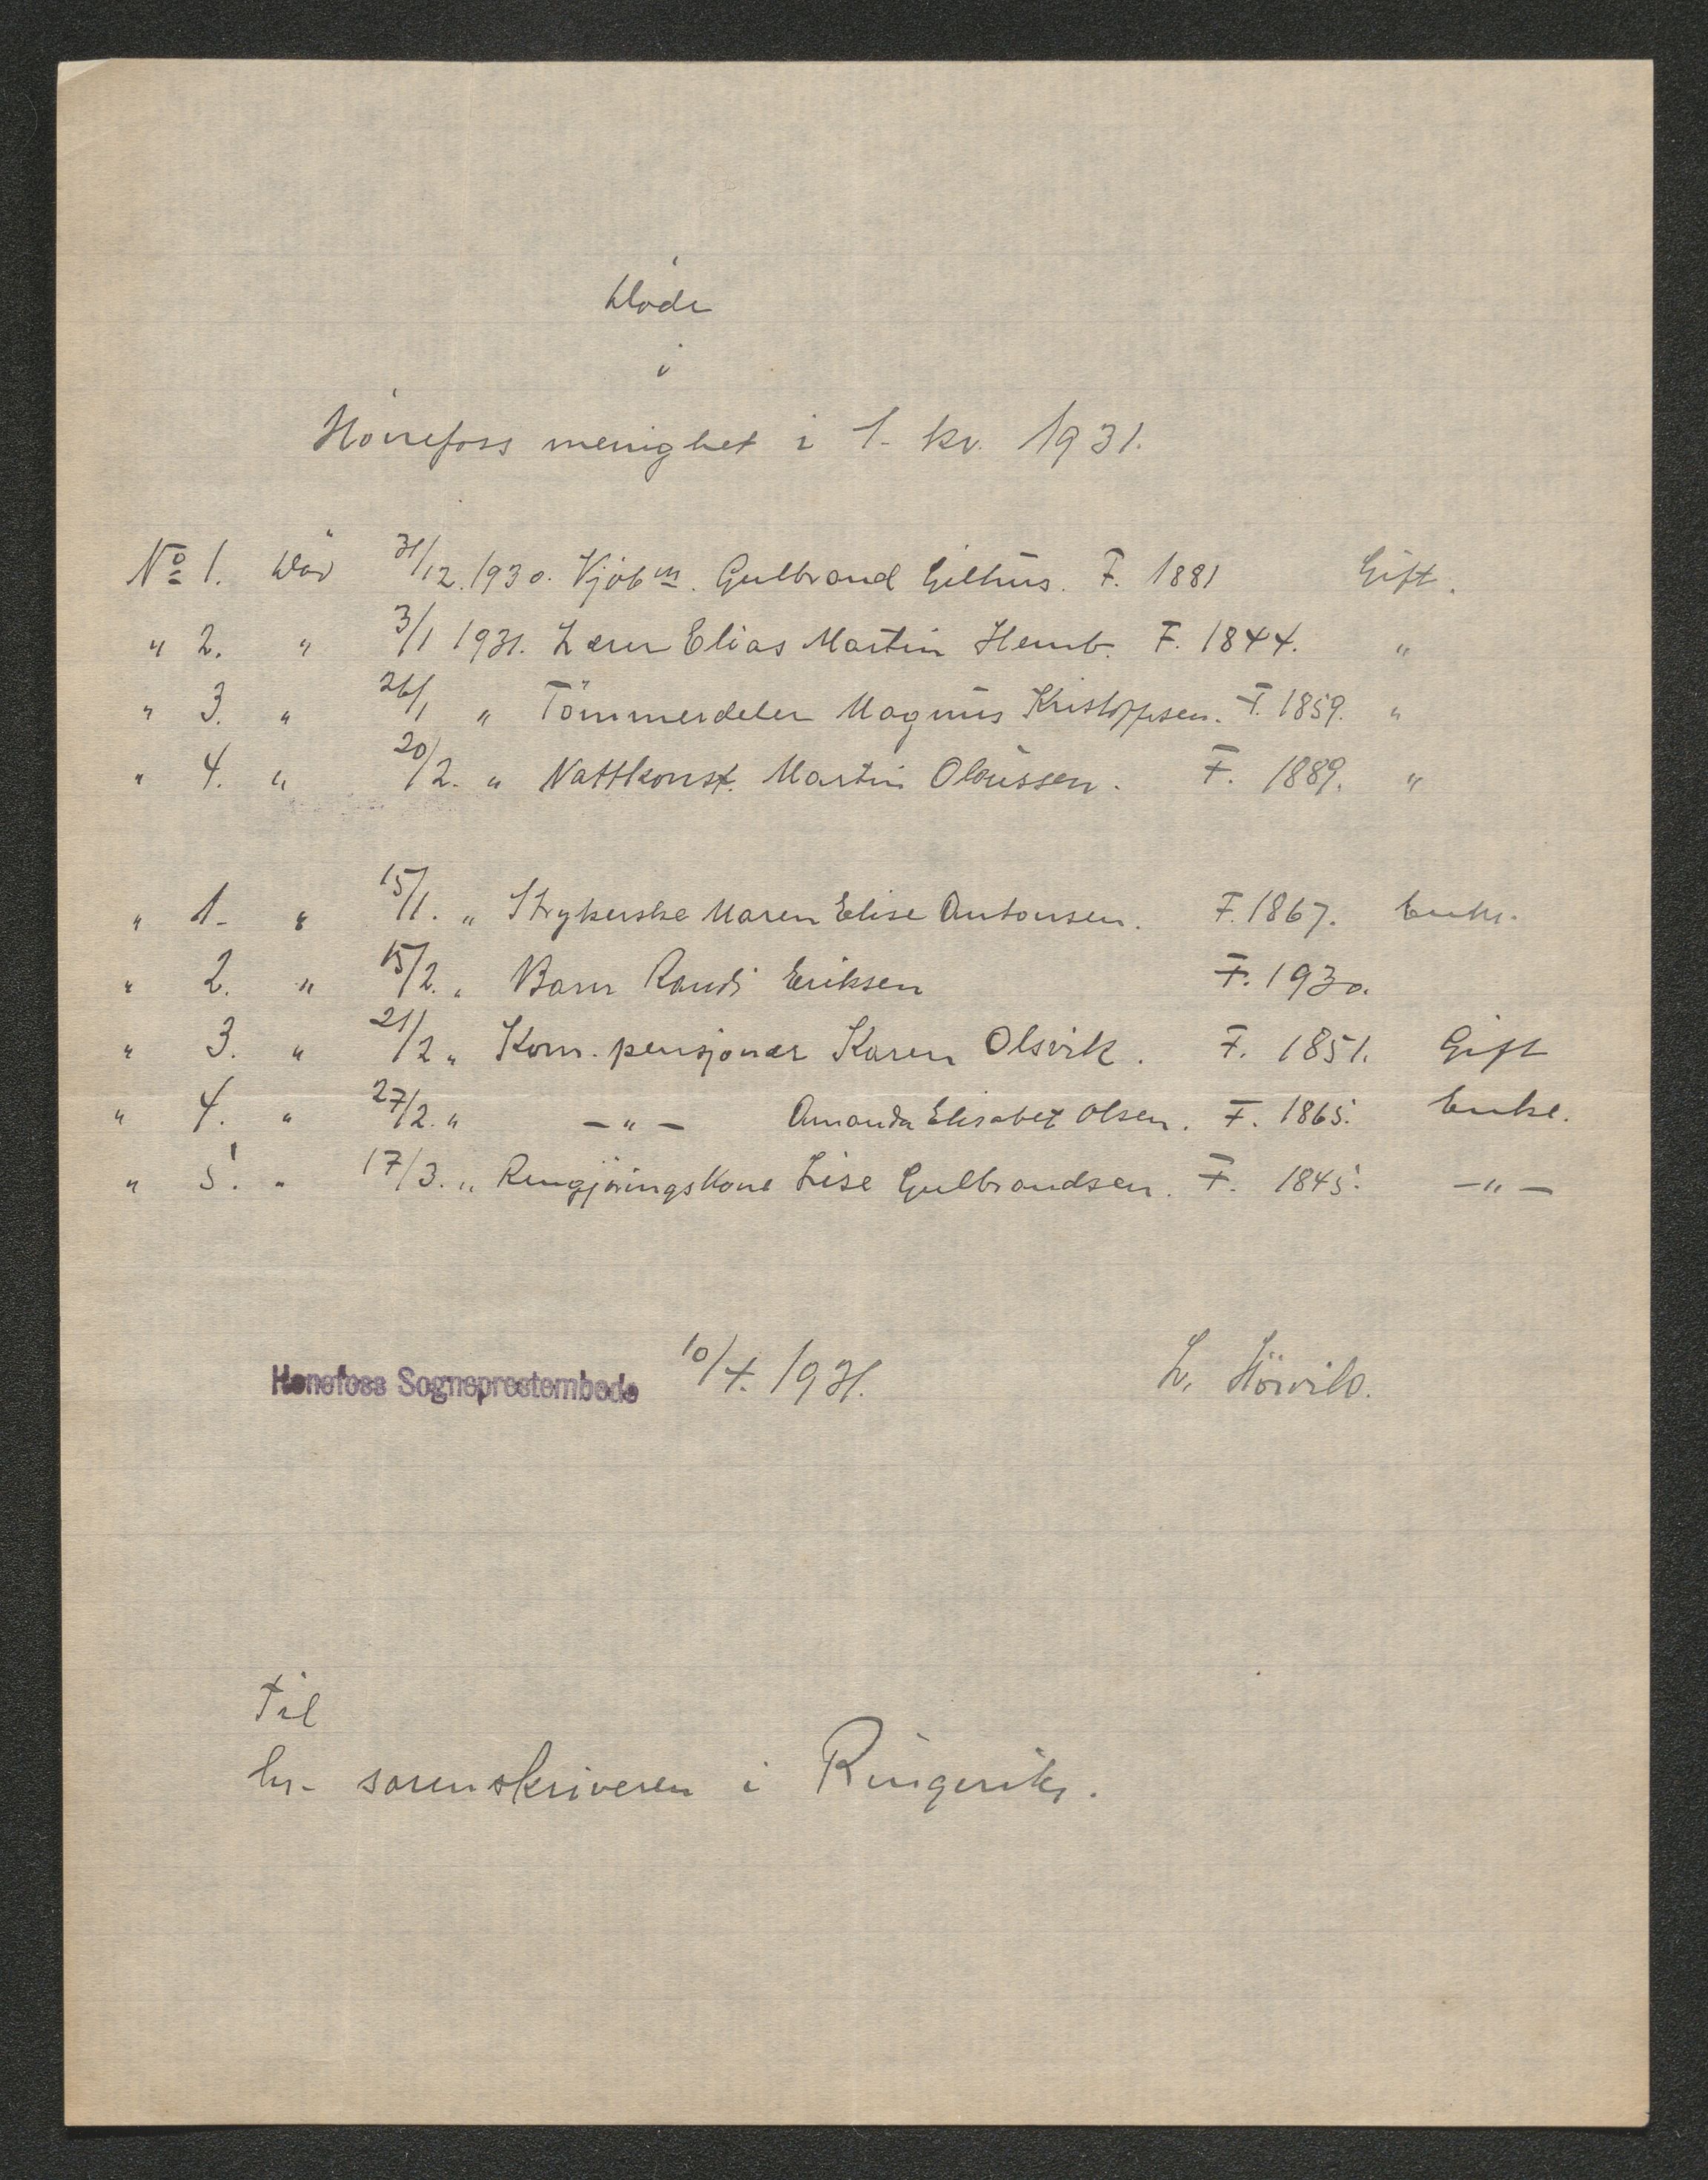 Døde
i
Hönefoss menighet i 1. kv. 1931.
No 1. Död 31/12. 1930. Kjöbm. Gulbrand Gilhus. F. 1881 Gift.
" 2. " 3/1 1931. Lærer Elias Martin Hemb. F. 1844. "
" 3. " 26/1 " Tömmerdeler Magnus Kristoffersen. F. 1859. "
" 4. " 20/2. " Nattkonst. Martin Olaussen. F. 1889. "
" 1. " 15/1. " Strykerske Maren Elise Antonsen. F. 1867. Enke.
" 2. " 15/2. " Barn Randi Eriksen F. 1930.
" 3. " 21/2 " Kom. pensjonær Karen Olsvik. F. 1851. Gift
" 4. " 27/2. " -"- Amanda Elisabet Olsen. F. 1865. Enke.
" 5. " 17/3. " Rengjöringskone Lise Gulbrandsen. F. 1845. -"-
Hønefoss Sogneprestembede 10/4. 1931. L.
Til
hr. sorenskriveren i Ringerike.